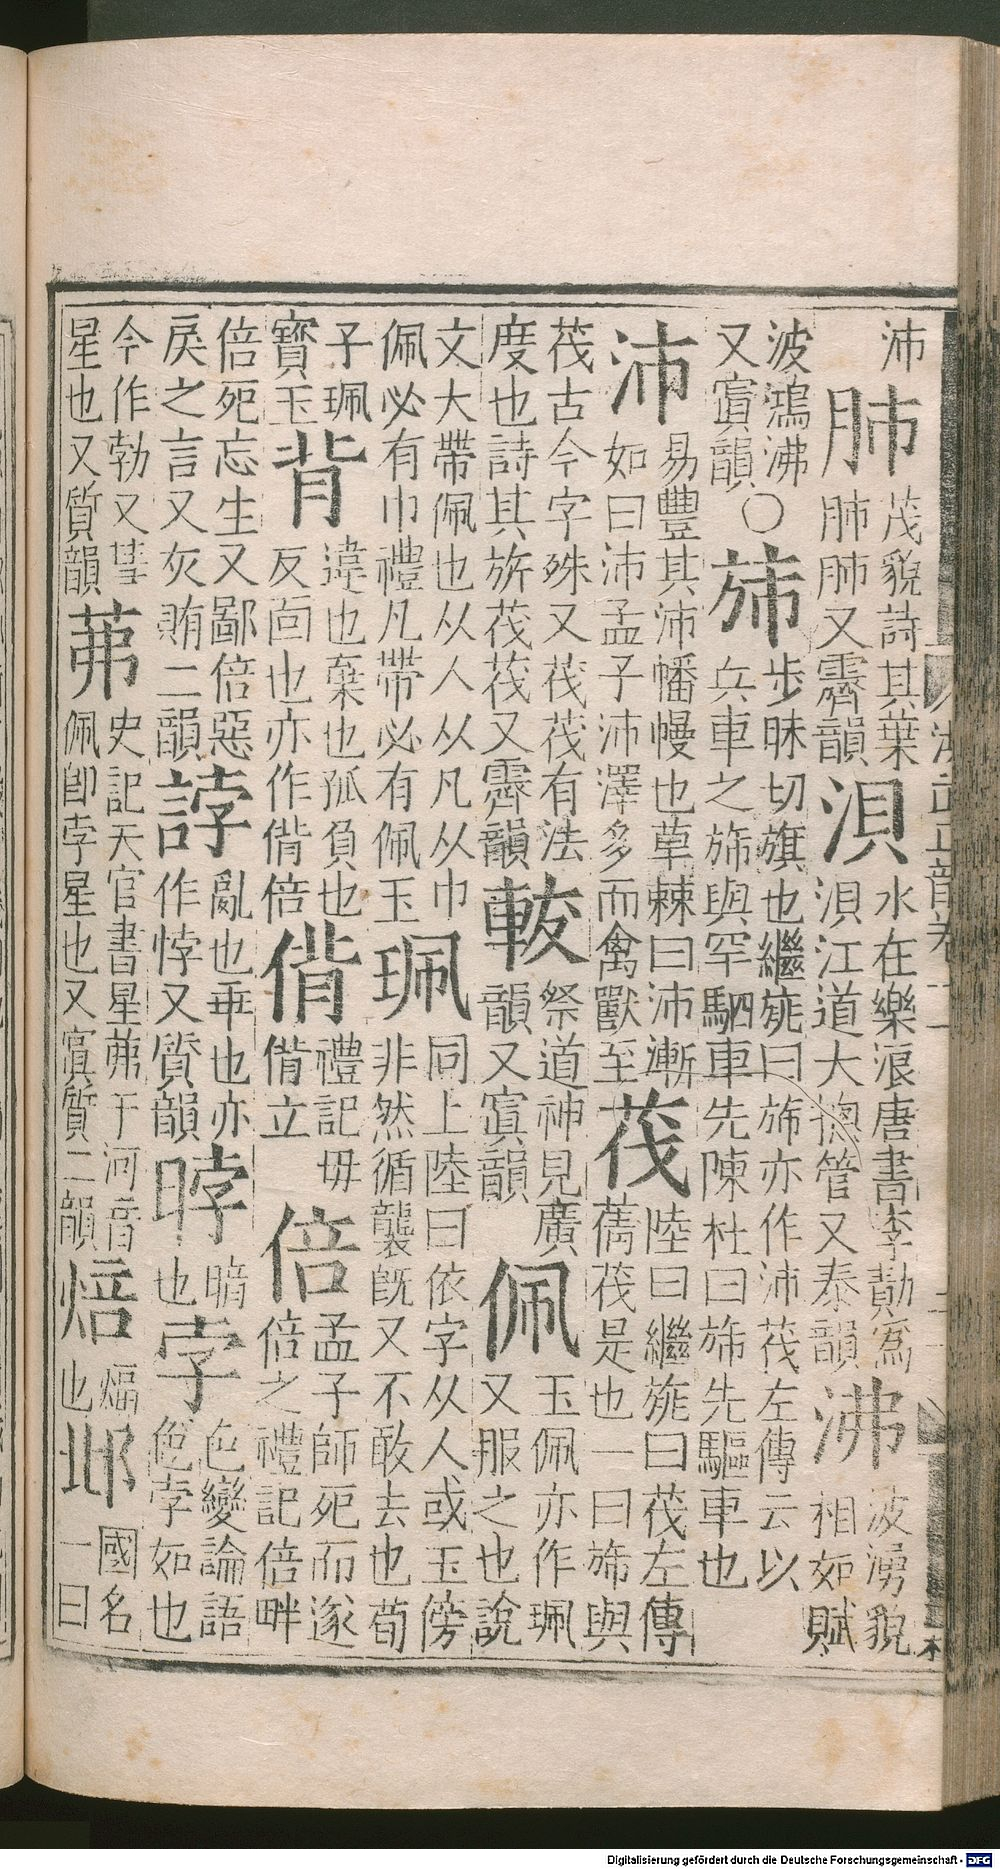 沛肺茂貌詩其葉肺肺又霽韻浿水在樂浪唐書李勣爲浿江道大總管又泰韻沸波湧貌相如賦
波鴻沸又寘韻○旆步昧切旗也繼旐曰旆亦作沛茷左傳云以兵車之旆與罕駟車先陳杜曰旆先驅車也
沛易豐其沛幡幔也草棘曰沛漸如曰沛孟子沛澤多而禽獸至茷陸曰繼旐曰茷左傳蒨茷是也一曰旆與
茷古今字殊又茷茷有法度也詩其旂茷茷又霽韻軷祭道神見廣韻又寘韻佩玉佩亦作珮又服之也說
文大帶佩也从人从凡从巾佩必有巾禮凡帶必有佩玉珮同上陸曰依字从人或玉傍非然循襲旣又不敢去也荀
子珮寶玉背違也棄也孤負也反面也亦作偝倍偝禮記毋偝立倍孟子師死而遂倍之禮記倍畔
倍死忘生又鄙倍惡戾之言又灰賄二韻誖亂也乖也亦作悖又質韻㫲暗也孛色變論語色孛如也
今作勃又彗星也又質韻茀史記天官書星茀于河音佩卽孛星也又寘質二韻焙煏也邶國名一曰
洪武正韻卷
Digitalisierung gefördert durch die Deutsche Forschungsgemeinschaft - DFG